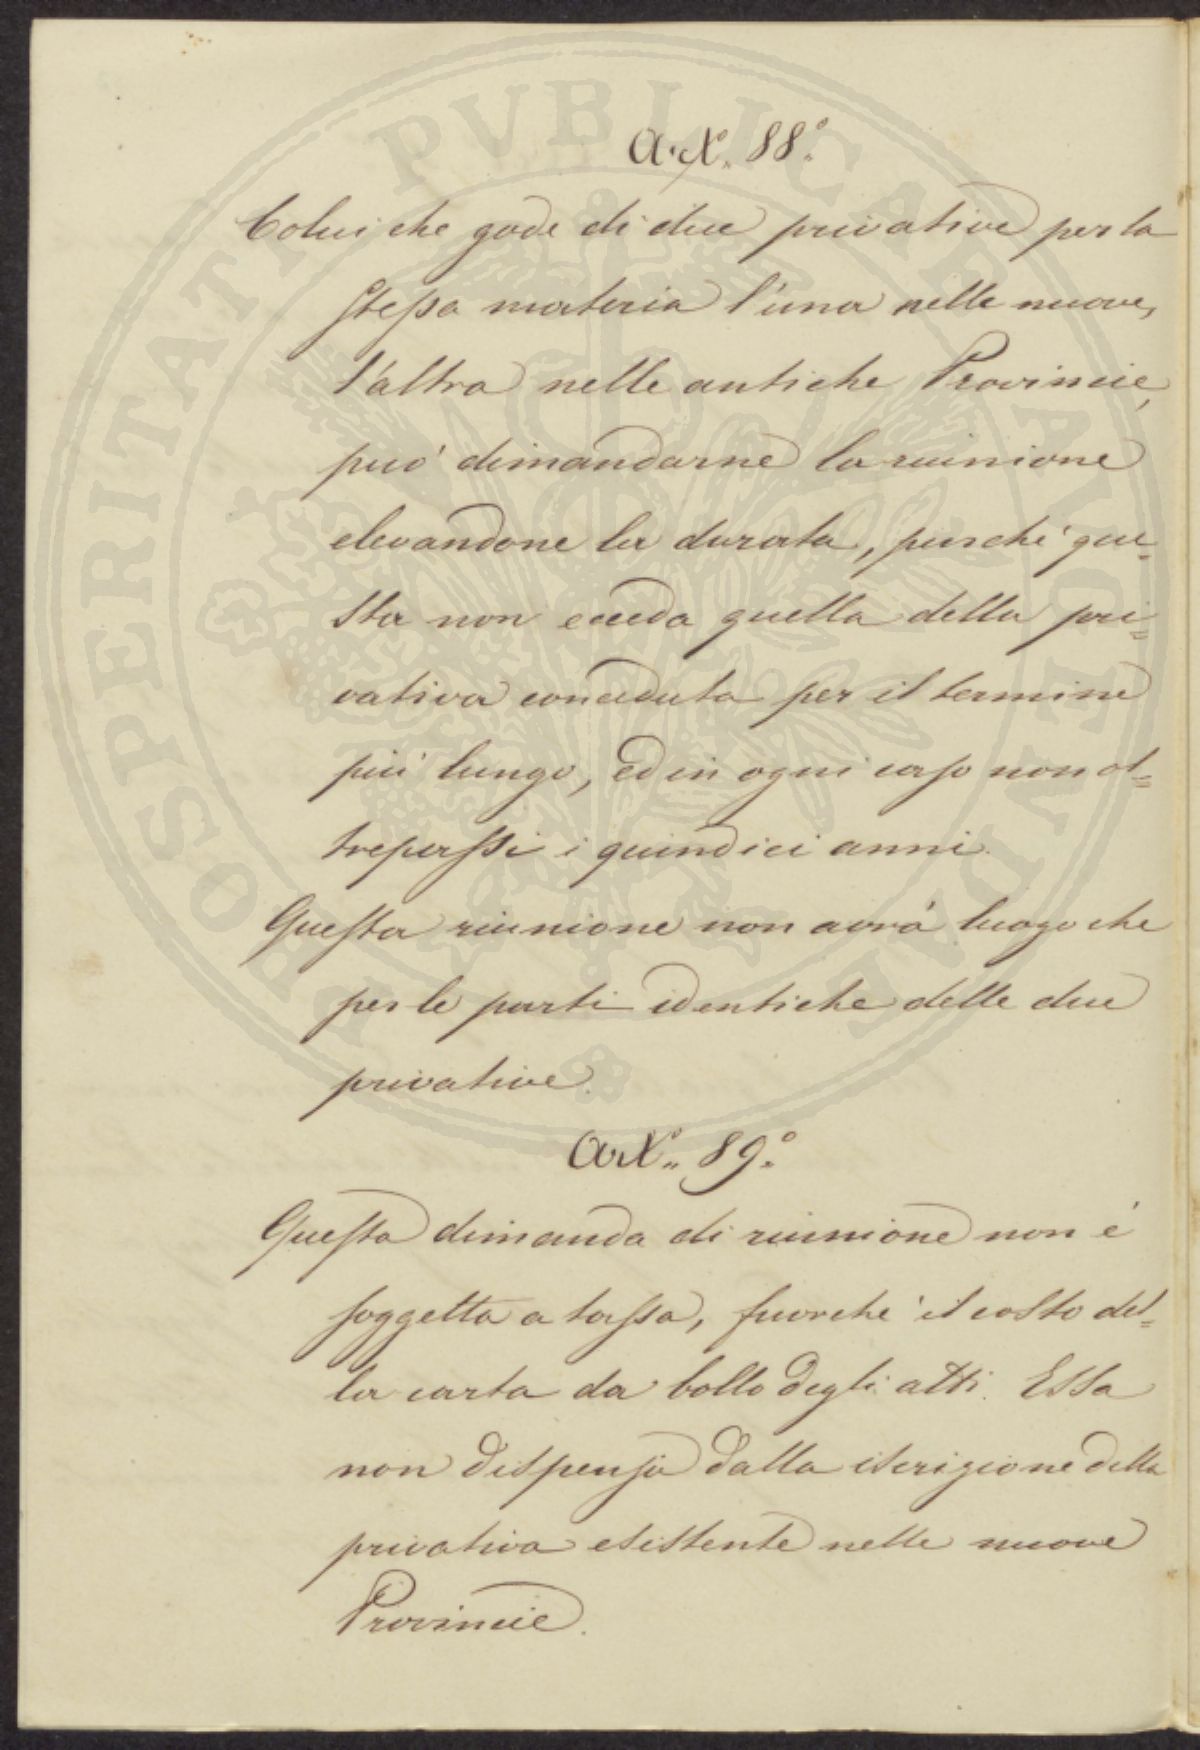 Art.° 88.°
Colui che gode di due privative per la
stessa materia l'una nelle nuove,
l'altra nelle antiche Provincie,
può dimandarne la riunione
elevandone la durata, purchè que=
sta non ecceda quella della pri=
vativa conceduta per il termine
più lungo, ed in ogni caso non ol=
trepassi i quindici anni.
Questa riunione non avrà luogo che
per le parti identiche delle due
privative.
Art.° 89.°
Questa dimanda di riunione non è
soggetta a tassa, fuorchè il costo del=
la carta da bollo degli atti. Essa
non dispensa dalla iscrizione della
privativa esistente nelle nuove
Provincie.
PROSPERITATI PVBLICAE AVGENDAE